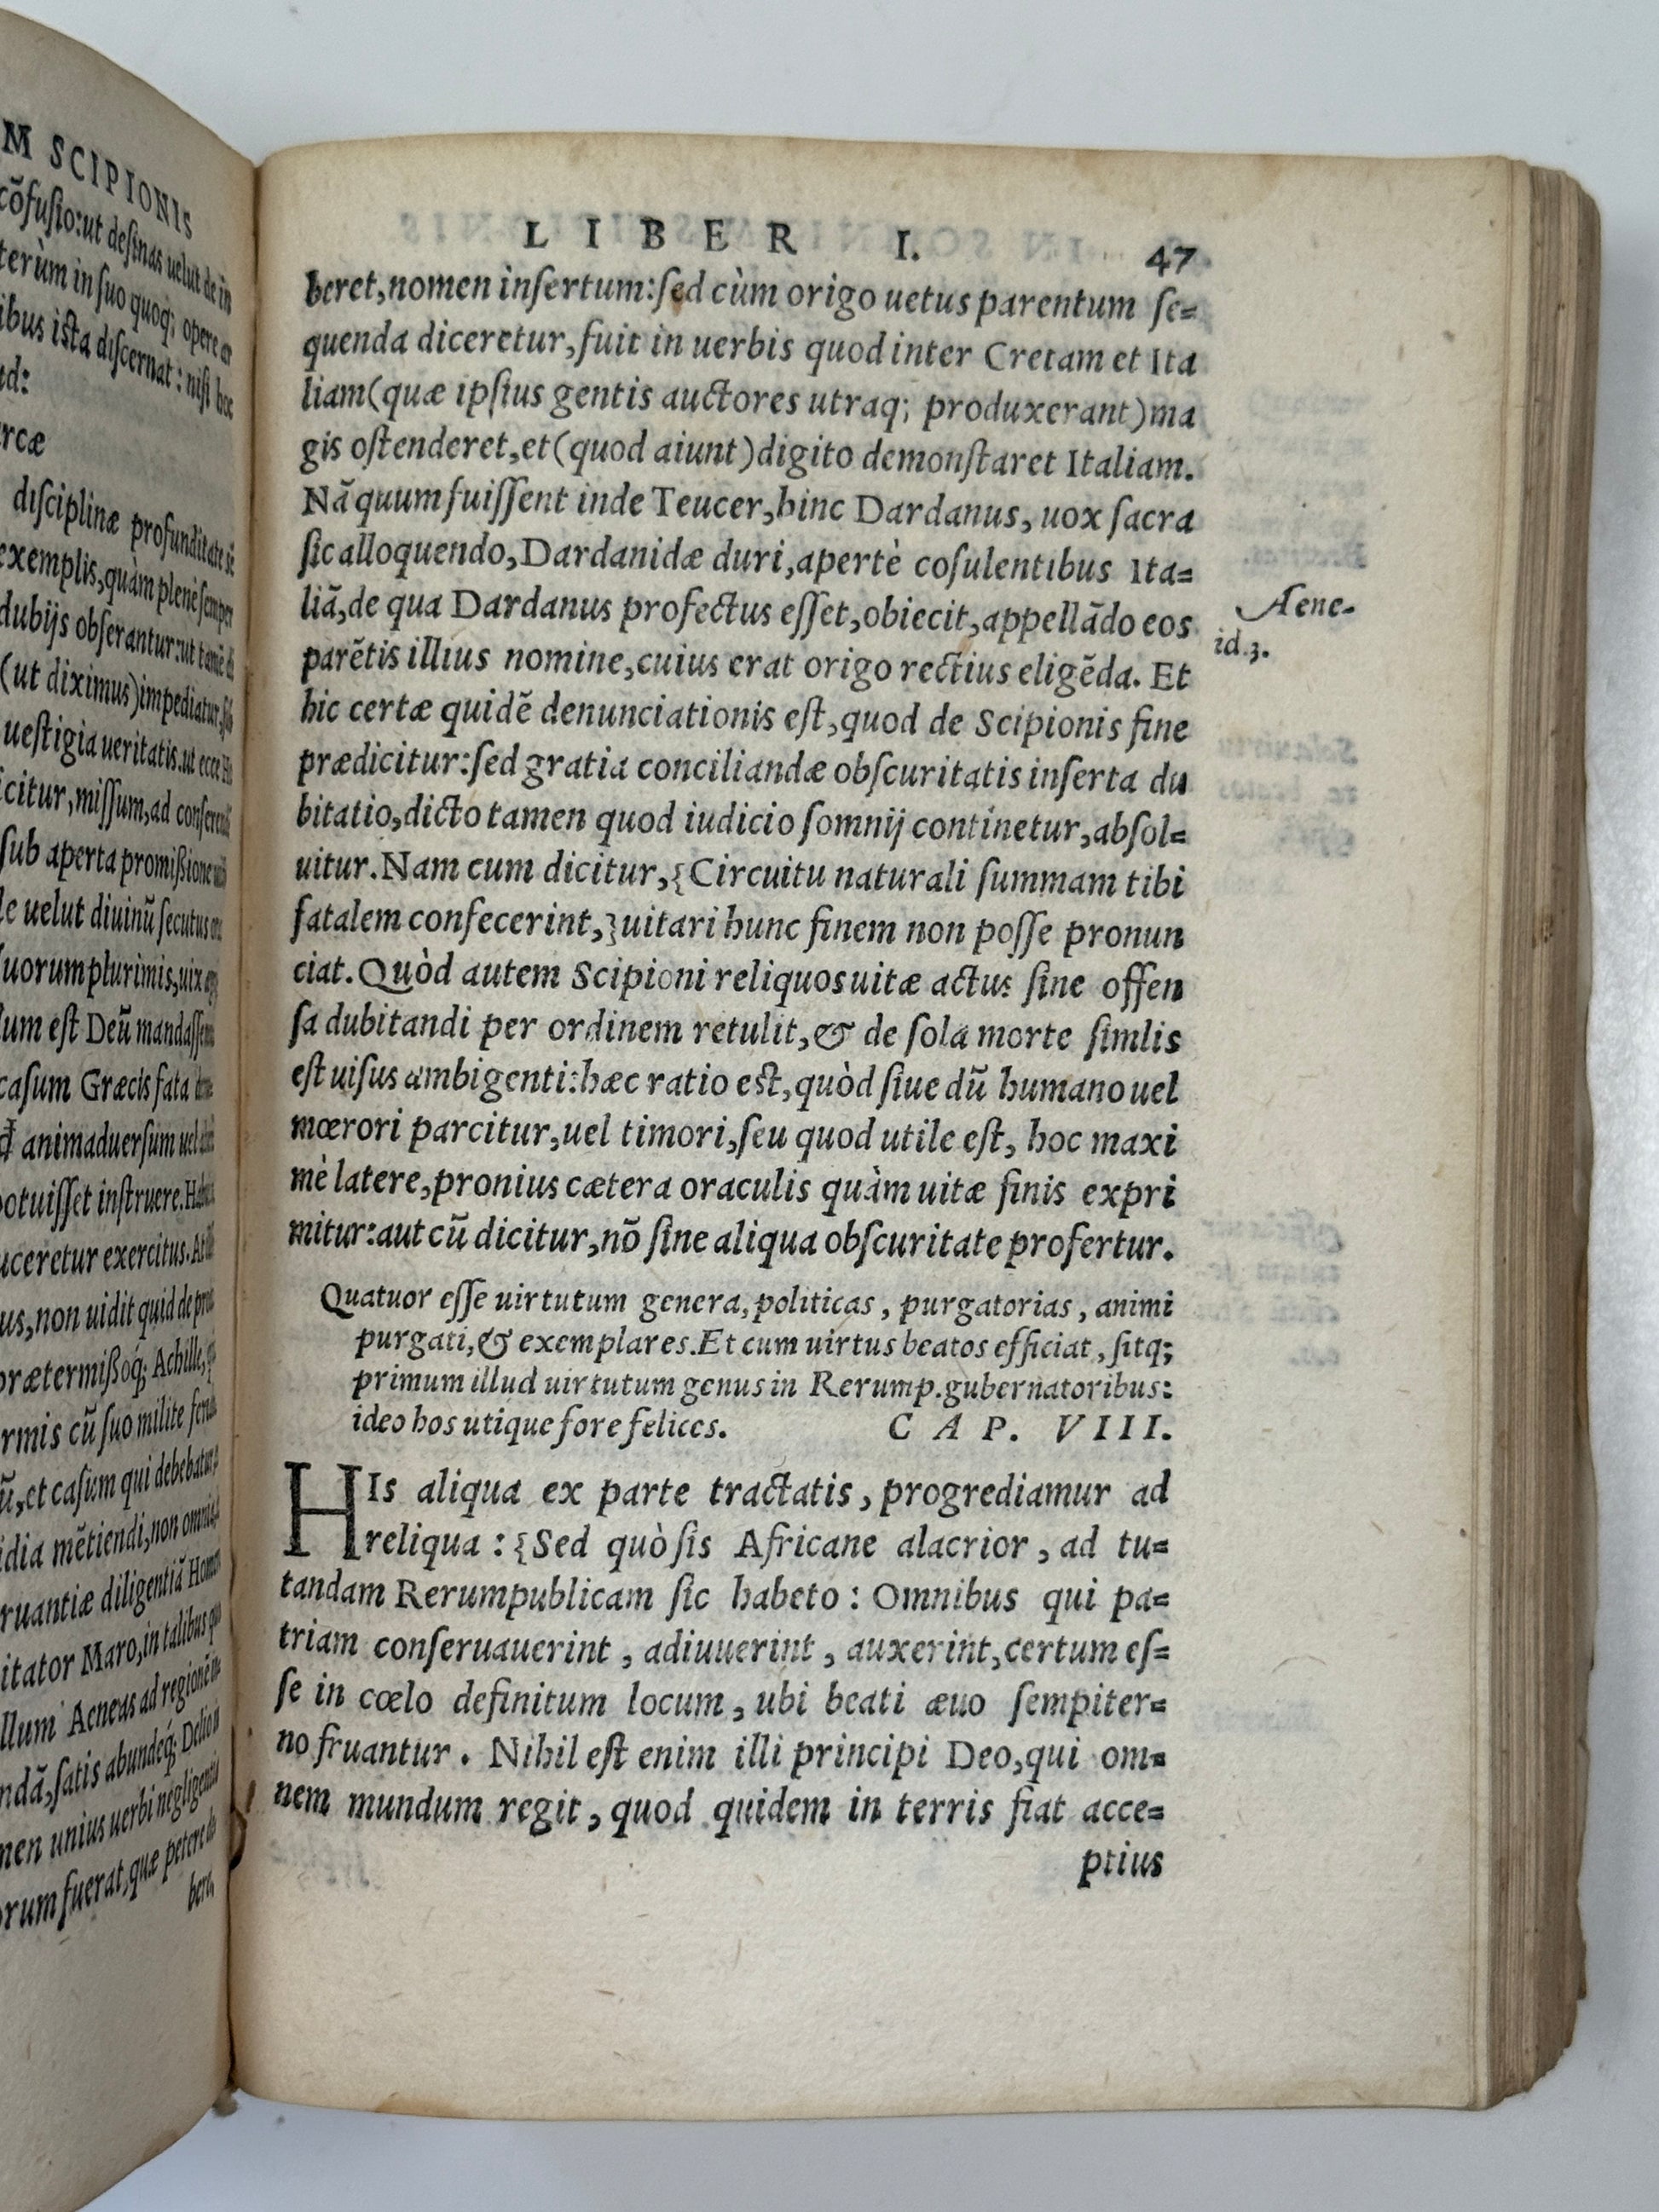 M SCIPIONIS
cõfuſio:ut deſinas uelut de in
terùm in ſuo quoq; opere
ibus iſta diſcernat: niſi hoc
rcæ
diſciplinæ profunditate
exemplis,quàm plenè ſemper
dubijs obſerantur:ut tamẽ
(ut diximus)impediatur
ueſtigia ueritatis.ut ecce
citur,miſſum,ad
ſub aperta promißione
uelut diuinũ ſecutus
uorum plurimis,uix
eſt Deũ
caſum Græcis fata
animaduerſum uel
potuiſſet inſtruere.
uceretur exercitus.
us,non uidit quid de
prætermißoq́; Achille,
rmis cũ ſuo milite
et caſum qui
mẽtiendi,non
ruantiæ diligentiã
itator Maro,in talibus
Aeneas ad
ſatis abundeq́;
men unius uerbi negligentia
orum fuerat,quæ petere
L I B E R I. 47
beret,nomen inſertum:ſed cùm origo uetus parentum ſe=
quenda diceretur,fuit in uerbis quod inter Cretam et Ita
liam(quæ ipſius gentis auctores utraq; produxerant)ma
gis oſtenderet,et(quod aiunt)digito demonſtaret Italiam.
Nã quum fuiſſent inde Teucer,hinc Dardanus, uox ſacra
ſic alloquendo,Dardanidæ duri,apertè coſulentibus Ita=
liã,de qua Dardanus profectus eſſet,obiecit,appellãdo eos
parẽtis illius nomine,cuius erat origo rectius eligẽda. Et
hic certæ quidẽ denunciationis eſt,quod de Scipionis fine
prædicitur:ſed gratia conciliandæ obſcuritatis inſerta du
bitatio,dicto tamen quod iudicio ſomnij continetur,abſol=
uitur.Nam cum dicitur,{Circuitu naturali ſummam tibi
fatalem confecerint,}uitari hunc finem non poſſe pronun
ciat.Quòd autem Scipioni reliquos uitæ actus ſine offen
ſa dubitandi per ordinem retulit,& de ſola morte ſimlis
eſt uiſus ambigenti:hæc ratio eſt,quòd ſiue dũ humano uel
mœrori parcitur,uel timori,ſeu quod utile eſt, hoc maxi
mè latere,pronius cætera oraculis quàm uitæ finis expri
mitur:aut cũ dicitur,nõ ſine aliqua obſcuritate profertur.
Aene-
id.3.
Quatuor eſſe uirtutum genera,politicas, purgatorias, animi
purgati,& exemplares.Et cum uirtus beatos efficiat, ſitq;
primum illud uirtutum genus in Rerump.gubernatoribus:
ideo hos utique fore felices. C A P. V I I I.
HIs aliqua ex parte tractatis, progrediamur ad
reliqua : {Sed quò ſis Africane alacrior, ad tu=
tandam Rerumpublicam ſic habeto : Omnibus qui pa=
triam conſeruauerint, adiuuerint, auxerint,certum eſ=
ſe in cœlo definitum locum, ubi beati æuo ſempiter=
no fruantur. Nihil eſt enim illi principi Deo,qui om=
nem mundum regit, quod quidem in terris fiat acce=
ptius